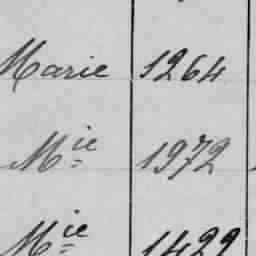 Marie 1264
Mie 1972
Mie 1422